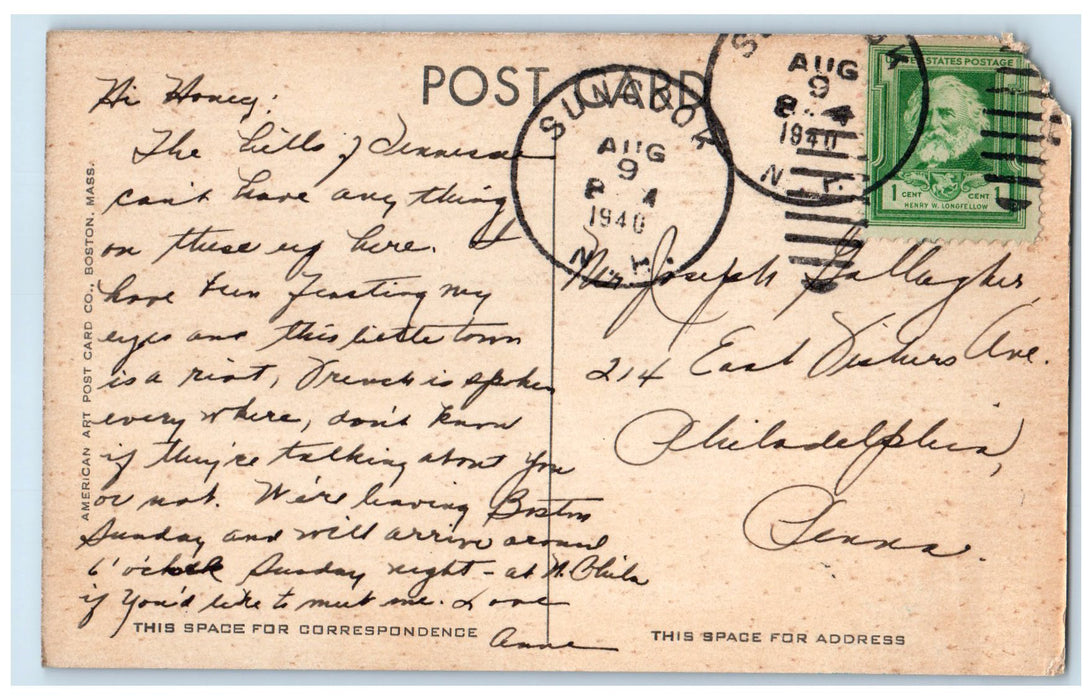 POST CARD
SUNCOOK
AUG
9
8 4
1940
N.H.
AUG
9
8 4
1940
N.H.
STATES POSTAGE
1 CENT CENT 1
HENRY W. LONGFELLOW
AMERICAN ART POST CARD CO., BOSTON, MASS.
Hi Honey:
The hills of Tennessee
can't have any thing
on these up here. I
have been feasting my
eyes and this little town
is a riot, French is spoken
every where, don't know
if they're talking about you
or not. We're leaving Boston
Sunday and will arrive around
6 o'clock Sunday night - at N. Phila
if you'd like to meet me. Love
Anne
THIS SPACE FOR CORRESPONDENCE
Mr. Joseph Gallagher,
214 East Ave.
Philadelphia,
Penna.
THIS SPACE FOR ADDRESS